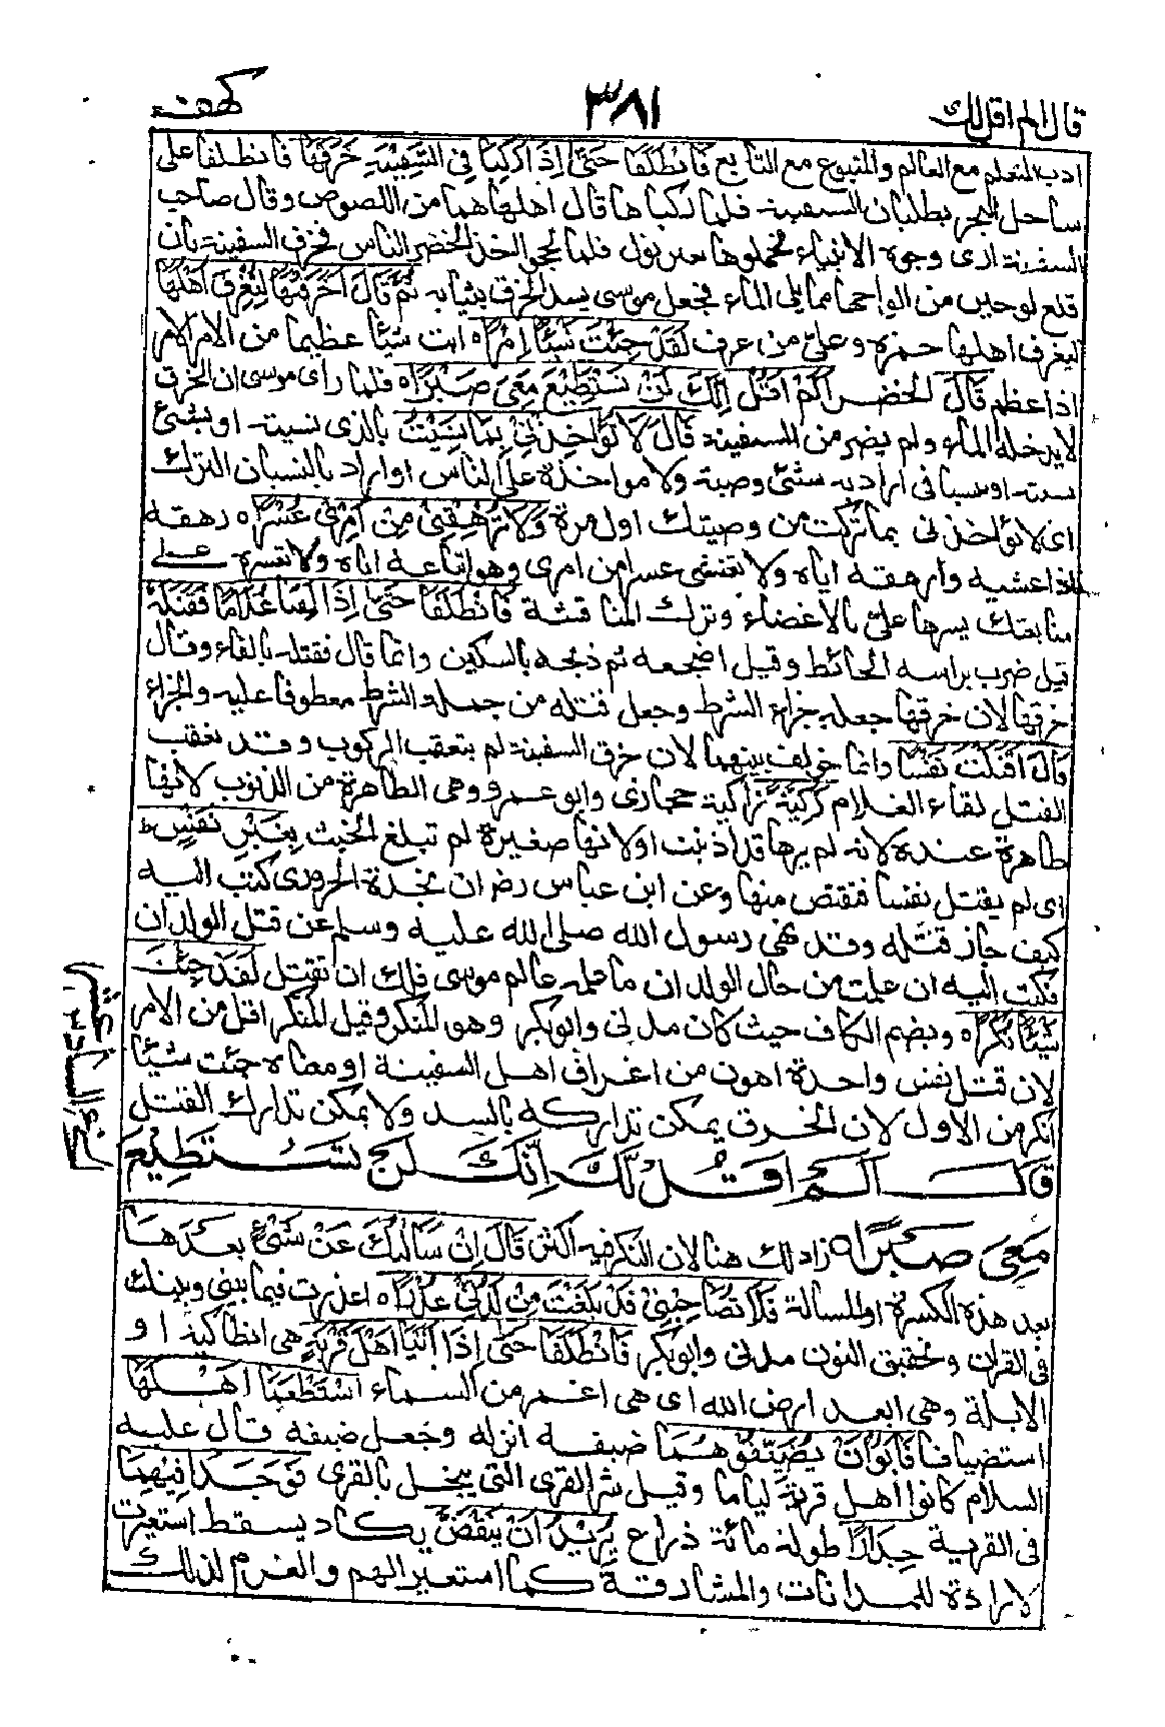 قال الم اقل لك
٣٨١
كهف
ادب المتعلم مع العالم والمتبوع مع التابع فَانْطَلَقَا حَتّٰى اِذَا رَكِبَا فِى السَّفِيْنَةِ خَرَقَهَا فانطلقا على
ساحل البحر يطلبان السفينة فلما ركباها قال اهلها هما من اللصوص وقال صاحب
السفينة ارى وجوه الانبياء فحملوهما بغير نول فلما لججوا اخذ الخضر الفاس فخرق السفينة بان
قلع لوحين من الواحها مما يلى الماء فجعل موسى يسد الخرق بثيابه ثم قَالَ اَخَرَقْتَهَا لِتُغْرِقَ اَهْلَهَا
ليغرق اهلها حمزة وعلى من غرق لَقَدْ جِئْتَ شَيْئًا اِمْرًا ه اتيت شيئا عظيما من امر الامر
اذا عظم قَالَ الخضر اَلَمْ اَقُلْ اِنَّكَ لَنْ تَسْتَطِيْعَ مَعِىَ صَبْرًا ه فلما راى موسى ان الخرق
لا يدخله الماء ولم يضر من السفينة قَالَ لَا تُؤَاخِذْنِىْ بِمَا نَسِيْتُ بالذى نسيته او بشئ
نسيته او بنسيانى اراد به شئى وصية ولا مواخذة على الناس او اراد بالنسيان الترك
اى لا تؤاخذنى بما تركت من وصيتك اول مرة وَلَا تُرْهِقْنِىْ مِنْ اَمْرِىْ عُسْرًا ه رهقه
اذا غشيه وارهقه اياه ولا تغشنى عسرا من امرى وهو اتباعه اياه ولا تعسر على
متابعتك يسرها على بالاغضاء وترك المناقشة فَانْطَلَقَا حَتّٰى اِذَا لَقِيَا غُلَامًا فَقَتَلَهٗ
قيل ضرب براسه الحائط وقيل اضجعه ثم ذبحه بالسكين وانما قال فقتله بالفاء وقال
خرقها لان خرقها جعله جزاء الشرط وجعل قتله من جملة الشرط معطوفا عليه والجزاء
قَالَ اَقَتَلْتَ نَفْسًا وانما خولف بينهما لان خرق السفينة لم يتعقب الركوب وقد تعقب
القتل لقاء الغلام زَكِيَّةً زاكية حجازى وابو عمرو وهى الطاهرة من الذنوب لانها
طاهرة عنده لانه لم يرها قد اذنبت او لانها صغيرة لم تبلغ الحنث بِغَيْرِ نَفْسٍ ط
اى لم يقتل نفسا فيقتص منها وعن ابن عباس رض ان نجدة الحرورى كتب اليه
كيف جاز قتله وقد نهى رسول الله صلى الله عليه وسلم عن قتل الولدان
فكتب اليه ان علمت من حال الولدان ما علمه عالم موسى فلك ان تقتل لَقَدْ جِئْتَ
شَيْئًا نُكْرًا ه وبضم الكاف حيث كان مدنى وابوبكر وهو المنكر وقيل المنكر اقل من الامر
لان قتل نفس واحدة اهون من اغراق اهل السفينة او معناه جئت شيئا
انكر من الاول لان الخرق يمكن تداركه بالسد ولا يمكن تدارك القتل
قَالَ اَلَمْ اَقُلْ لَّكَ اِنَّكَ لَنْ تَسْتَطِيْعَ
مَعِىَ صَبْرًا ه زاد لك هنا لان النكر فيه اكثر قَالَ اِنْ سَاَلْتُكَ عَنْ شَىْءٍ بَعْدَهَا
بعد هذه الكرة او المسالة فَلَا تُصَاحِبْنِىْ قَدْ بَلَغْتَ مِنْ لَّدُنِّىْ عُذْرًا ه اعذرت فيما بينى وبينك
فى الفراق وتخفيف النون مدنى وابوبكر فَانْطَلَقَا حَتّٰى اِذَا اَتَيَا اَهْلَ قَرْيَةٍ هى انطاكية او
الابلة وهى ابعد ارض الله اى هى اغم من السماء اسْتَطْعَمَا اَهْلَهَا
استضيافا فَاَبَوْا اَنْ يُّضَيِّفُوْهُمَا ضيفه انزله وجعل ضيفه قال عليه
السلام كانوا اهل قرية لياما وقيل شر القرى التى يبخل بالقرى فَوَجَدَا فِيْهَا
فى القرية جِدَارًا طوله مائة ذراع يُّرِيْدُ اَنْ يَّنْقَضَّ يكاد يسقط استعيرت
الارادة للمدانات والمشارفة كما استعير الهم والعزم لذلك
الجزء السادس عشر